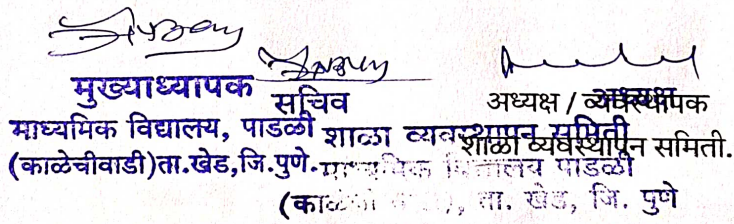 मुख्याध्यापक
माध्यमिक विद्यालय, पाडळी
(काळेचीवाडी)ता.खेड,जि.पुणे.
सचिव
शाळा व्यवस्थापन समिती
माध्यमिक विद्यालय पाडळी
ता. खेड, जि. पुणे
अध्यक्ष
अध्यक्ष / व्यवस्थापक
शाळा व्यवस्थापन समिती.